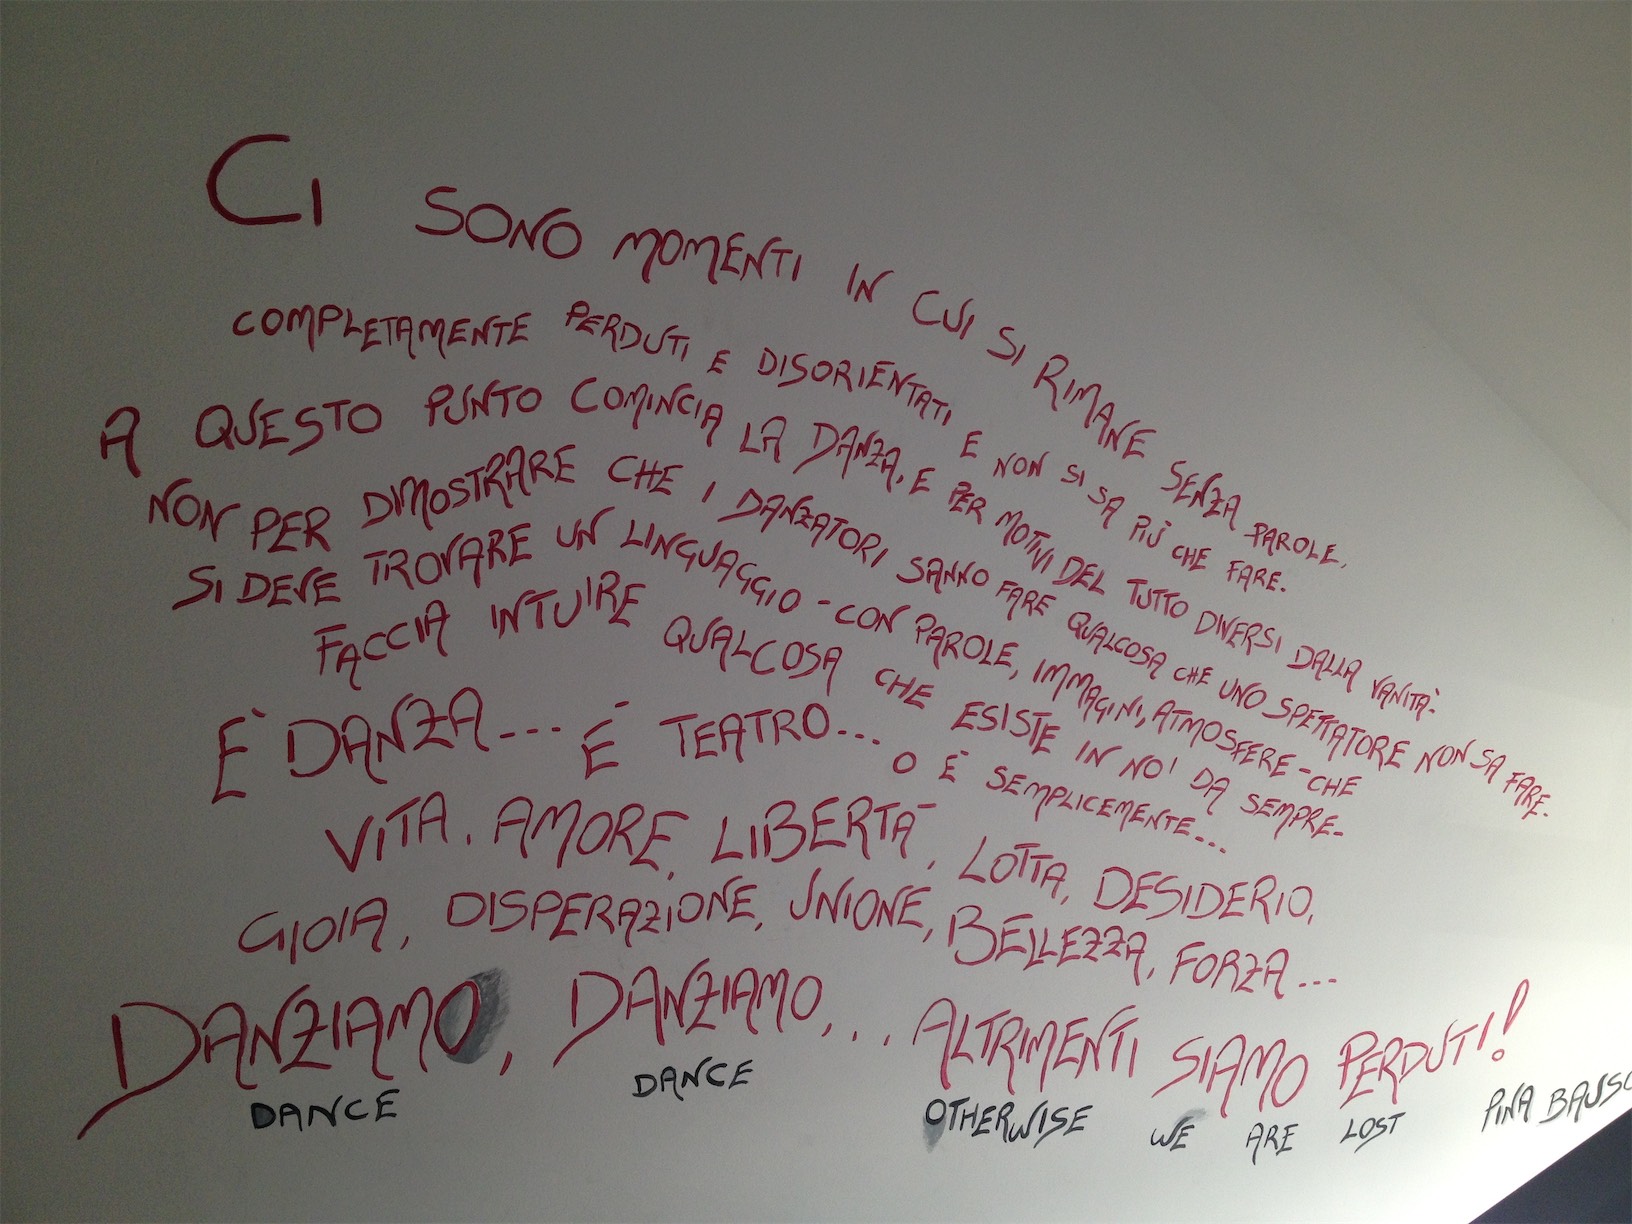 CI SONO MOMENTI IN CUI SI RIMANE SENZA PAROLE,
COMPLETAMENTE PERDUTI E DISORIENTATI E NON SI SA PIÙ CHE FARE.
A QUESTO PUNTO COMINCIA LA DANZA, E PER MOTIVI DEL TUTTO DIVERSI DALLA VANITÀ.
NON PER DIMOSTRARE CHE I DANZATORI SANNO FARE QUALCOSA CHE UNO SPETTATORE NON SA FARE.
SI DEVE TROVARE UN LINGUAGGIO - CON PAROLE, IMMAGINI, ATMOSFERE - CHE
FACCIA INTUIRE QUALCOSA CHE ESISTE IN NOI DA SEMPRE-
È DANZA... È TEATRO... O È SEMPLICEMENTE...
VITA, AMORE, LIBERTÀ, LOTTA, DESIDERIO,
GIOIA, DISPERAZIONE, UNIONE, BELLEZZA, FORZA...
DANZIAMO, DANZIAMO,... ALTRIMENTI SIAMO PERDUTI!
DANCE DANCE OTHERWISE WE ARE LOST PINA BAUSC